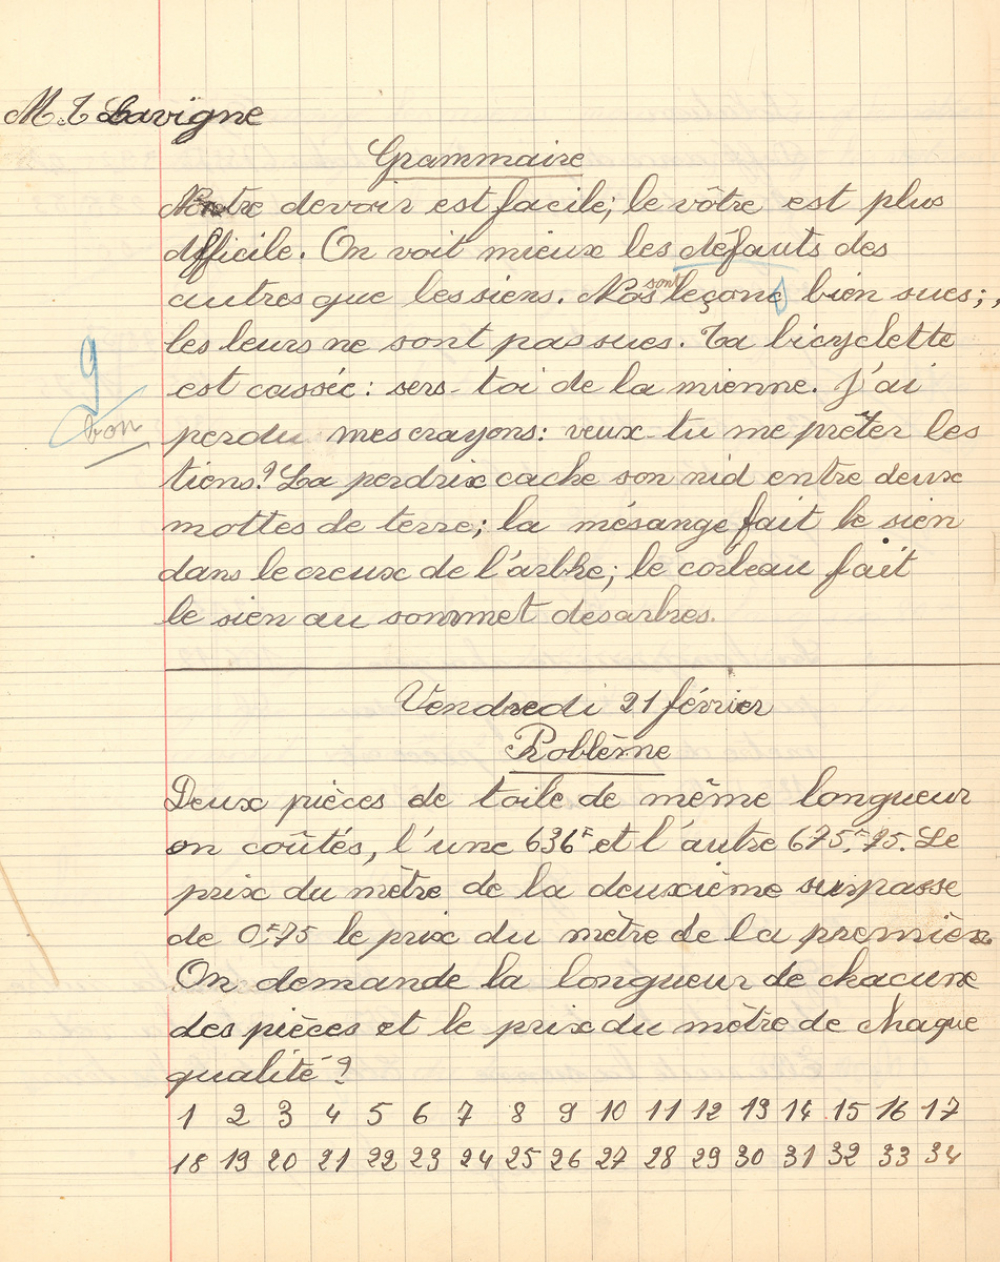 M. T Lavigne
Grammaire
Notre devoir est facile; le vôtre est plus
difficile. On voit mieux les défauts des
autres que les siens. Nos leçons sont bien sues;
les leurs ne sont pas sues. Ta bicyclette
est cassée: sers-toi de la mienne. J'ai
9
bon
perdu mes crayons: veux-tu me prêter les
tiens? La perdrix cache son nid entre deux
mottes de terre; la mésange fait le sien
dans le creux de l'arbre; le corbeau fait
le sien au sommet des arbres.
Vendredi 21 février
Problème
Deux pièces de toile de même longueur
on coûtés, l'une 636F et l'autre 675F,75. Le
prix du mètre de la deuxième surpasse
de 0F,75 le prix du mètre de la première
On demande la longueur de chacune
des pièces et le prix du mètre de chaque
qualité?
1 2 3 4 5 6 7 8 9 10 11 12 13 14 15 16 17
18 19 20 21 22 23 24 25 26 27 28 29 30 31 32 33 34